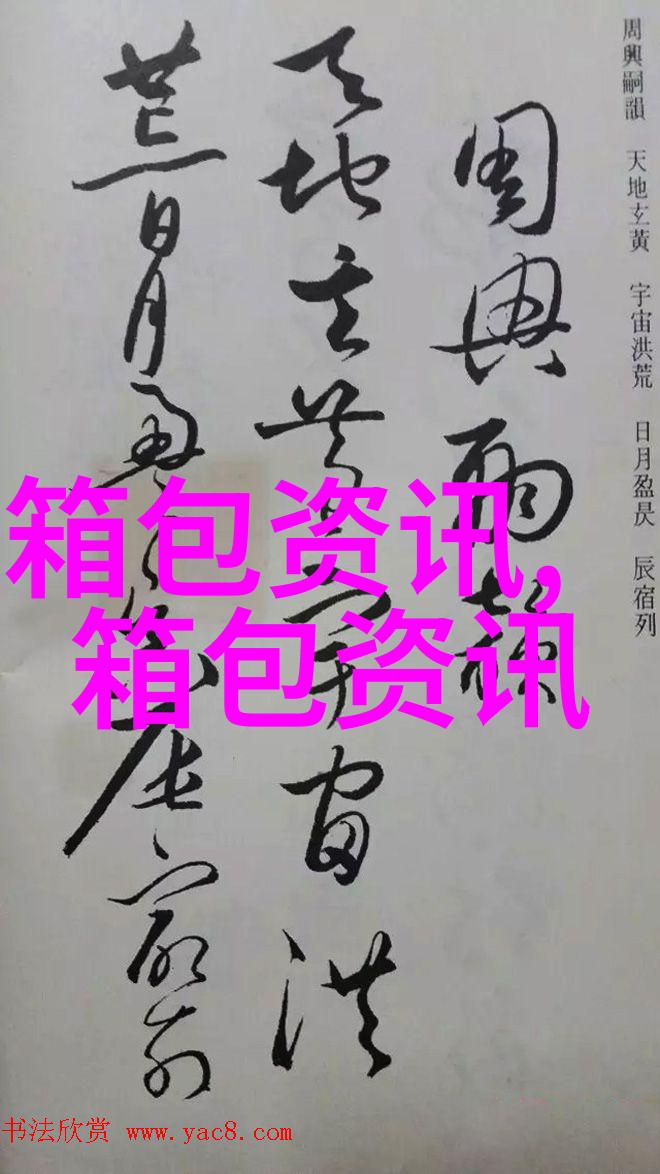 周興嗣韻 天地玄黃 宇宙洪荒 日月盈昃 辰宿列
周興嗣韻
天地玄黃宇宙洪
荒日月盈昃辰宿列
箱包资讯,
箱包资讯
书法欣赏 www.yac8.com